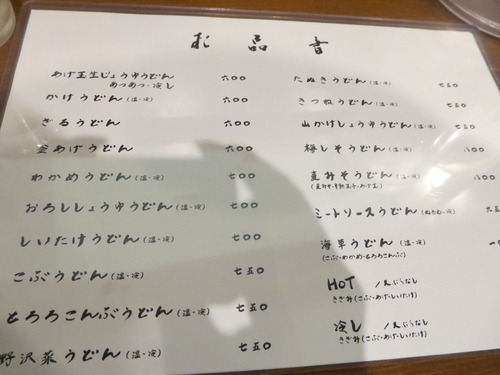 お品書
あげ玉生じょうゆうどん 六〇〇
あつあつ・冷し
かけうどん 六〇〇
ざるうどん 六〇〇
釜あげうどん 六〇〇
わかめうどん(温・冷) 七〇〇
おろししょうゆうどん(温・冷) 七〇〇
しいたけうどん(温・冷) 七〇〇
こぶうどん(温・冷) 七五〇
とろろこんぶうどん(温・冷) 七五〇
野沢菜うどん(温・冷) 七五〇
たぬきうどん(温・冷) 七五〇
きつねうどん(温・冷) 七五〇
山かけしょうゆうどん(温・冷) 七五〇
梅しそうどん(温・冷) 八〇〇
直みそうどん(温・冷) 八〇〇
ミートソースうどん
海草うどん(温・冷)
(こぶ・わかめ・とろろこんぶ)
HOT /んぷらなし
きざみ(こぶ・あげ・しいたけ)
冷し /んぷらなし
きざみ(こぶ・あげ・しいたけ)